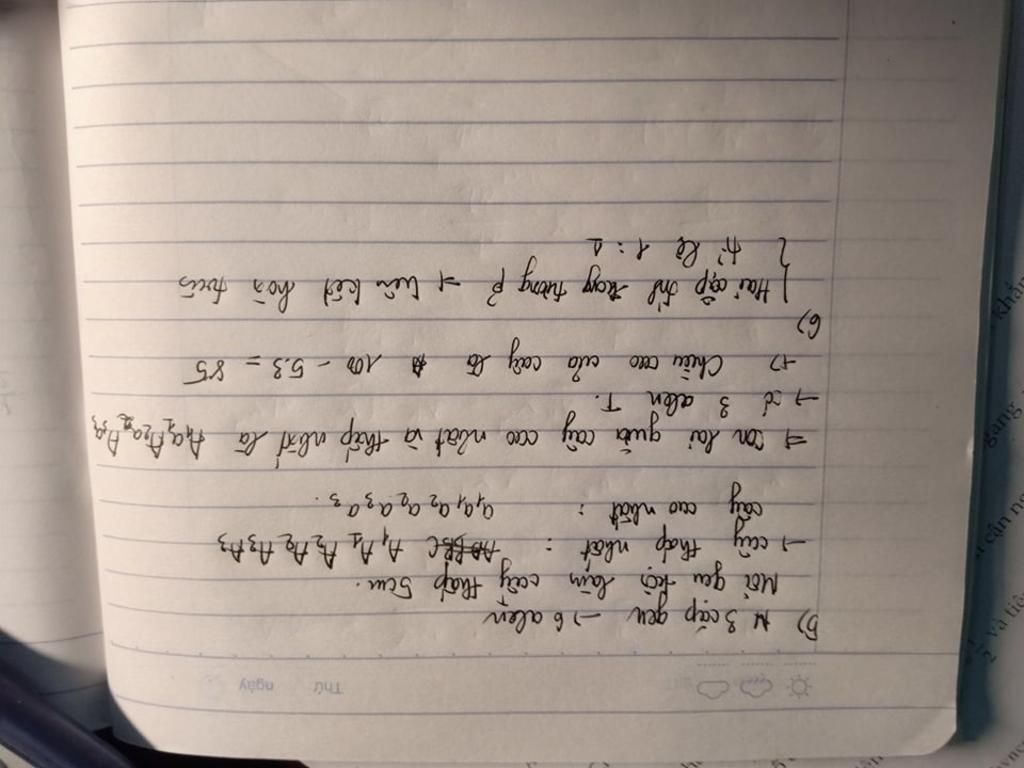 Thứ ngày
5) 3 cặp gen → 6 alen
Mỗi gen trội làm cây thấp 5cm.
→ cây thấp nhất : A₁A₁A₂A₂A₃A₃
cây cao nhất : a₁a₁a₂a₂a₃a₃.
→ con lai giữa cây cao nhất và thấp nhất là A₁a₁A₂a₂A₃a₃
→ có 3 alen T.
→ Chiều cao của cây là 100 - 5.3 = 85
6)
Hai cặp tt tương p → liên kết hoàn toàn
tỉ lệ 1 : 1